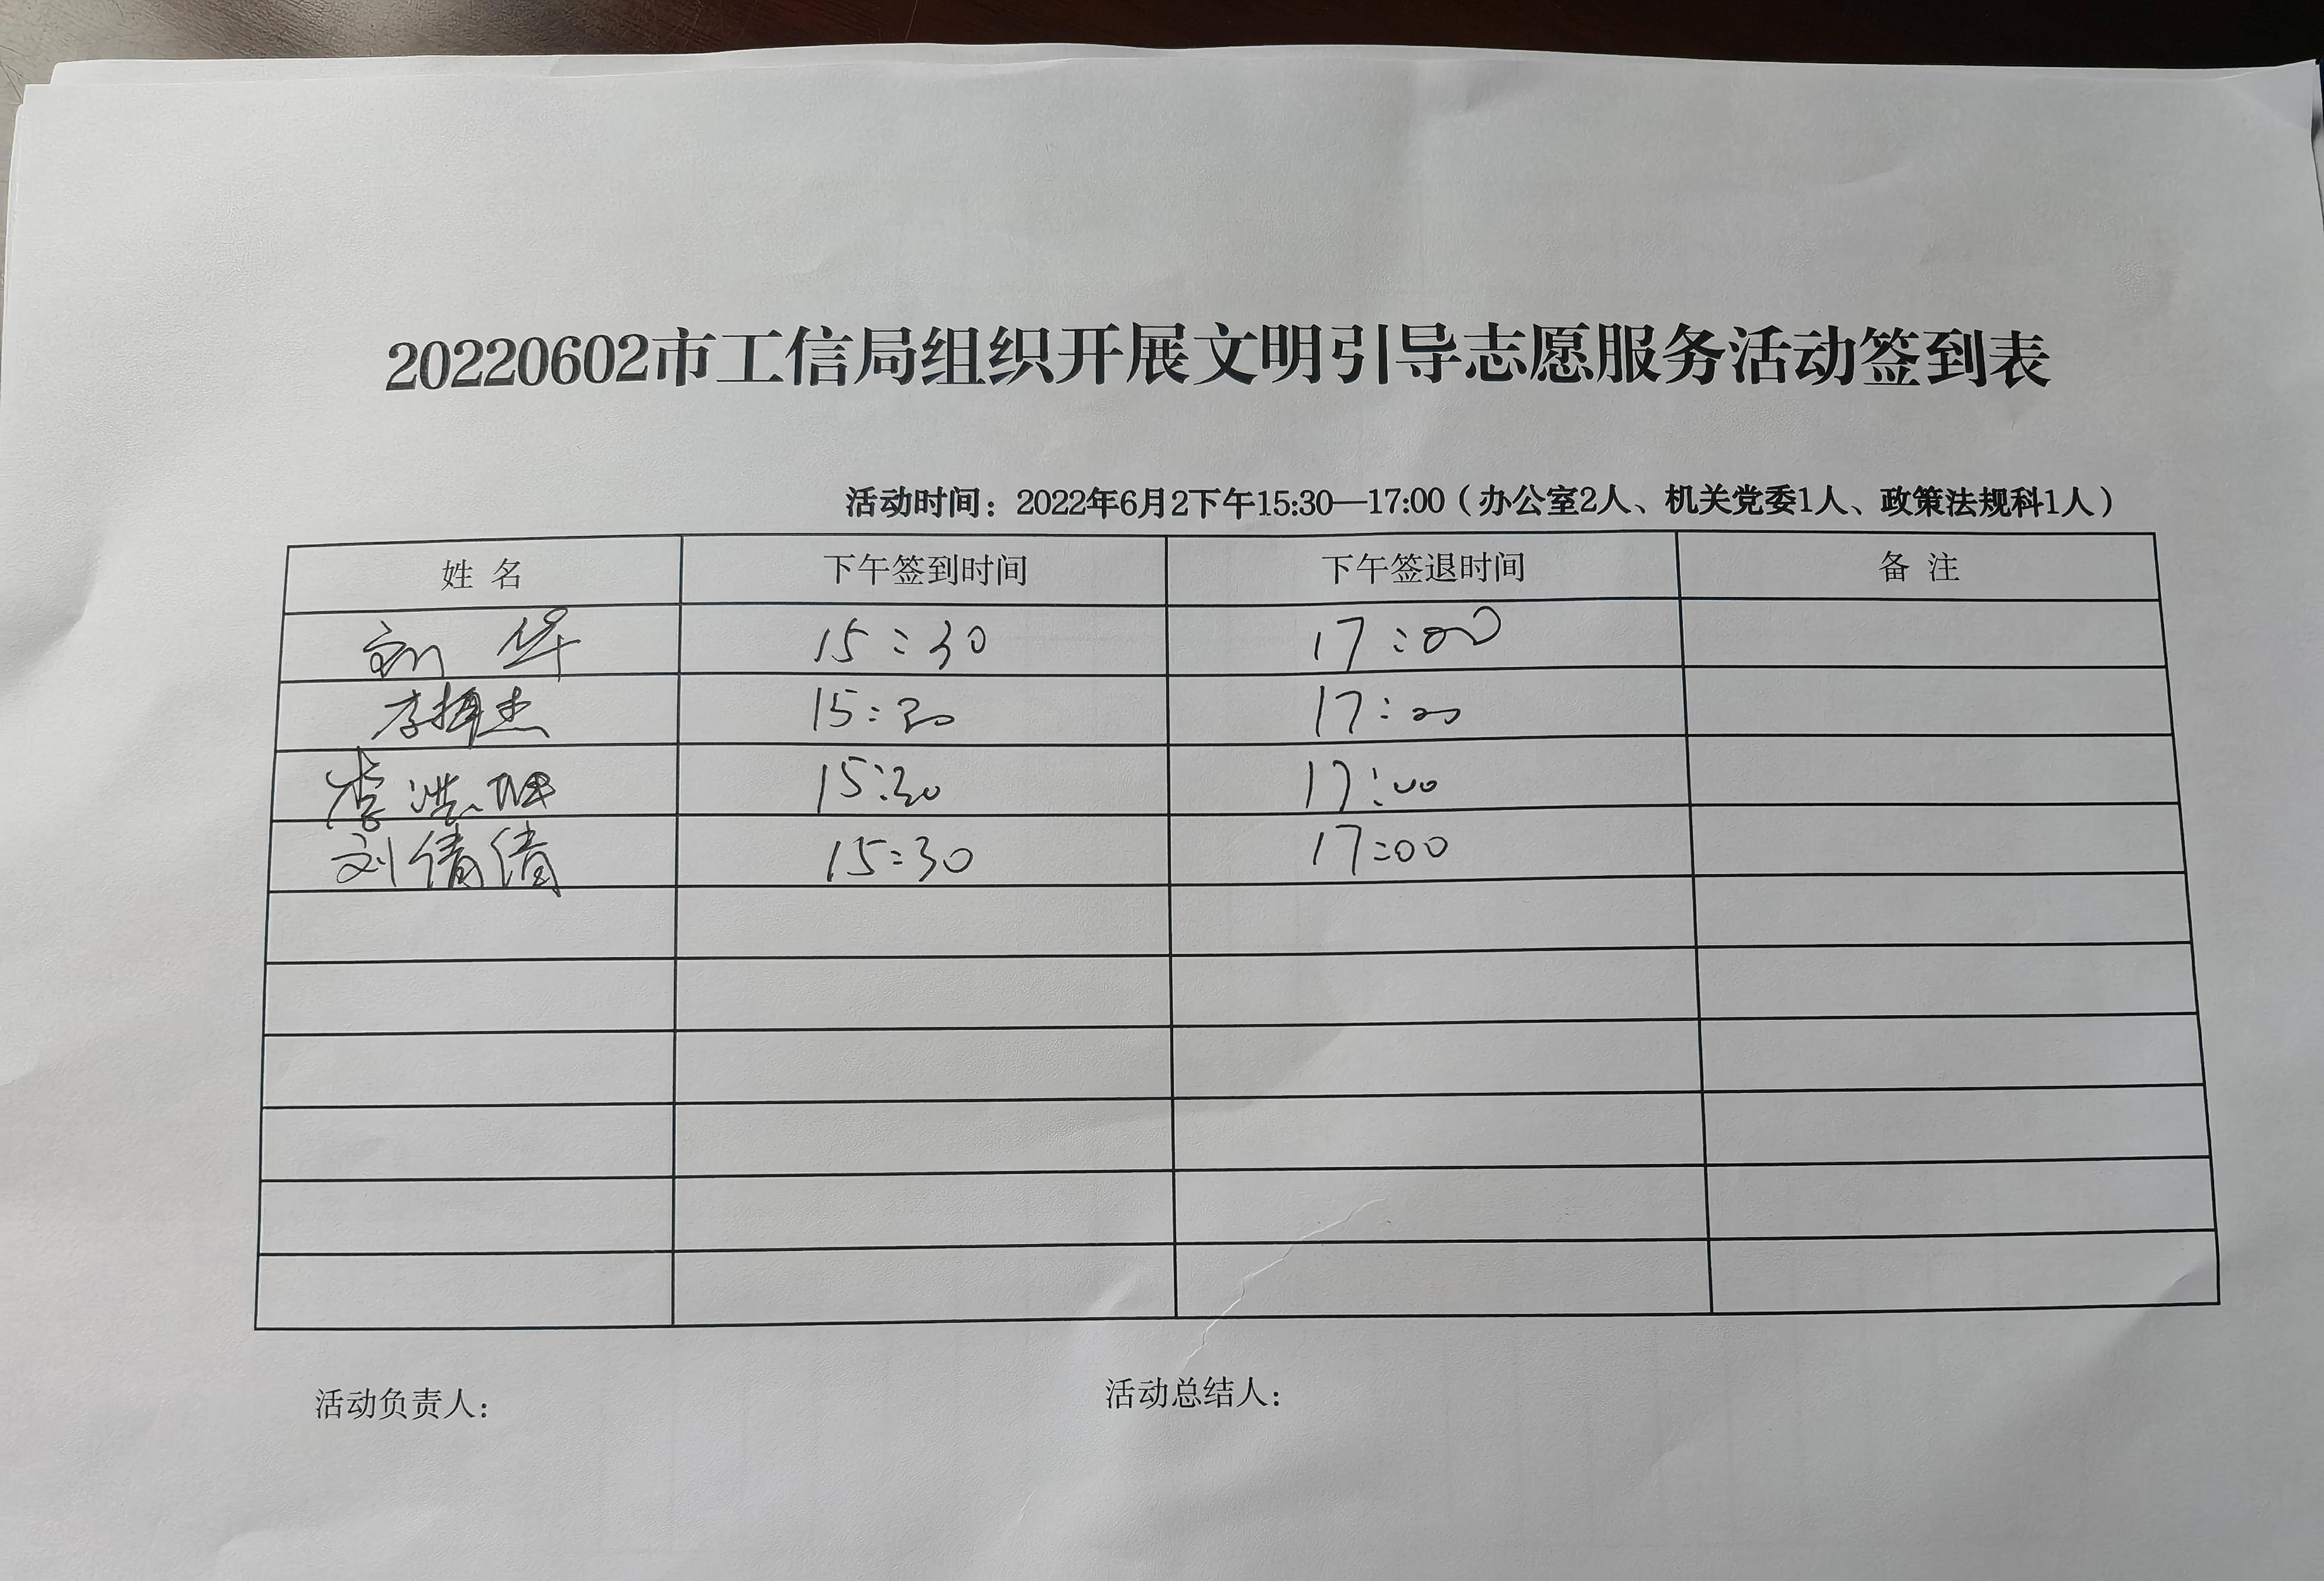 20220602市工信局组织开展文明引导志愿服务活动签到表
活动时间：2022年6月2下午15:30—17:00（办公室2人、机关党委1人、政策法规科1人）
姓 名 下午签到时间 下午签退时间 备 注
刘 华 15:30 17:00
李 杰 15:30 17:00
李洪 15:30 17:00
刘倩倩 15:30 17:00
活动负责人： 活动总结人：